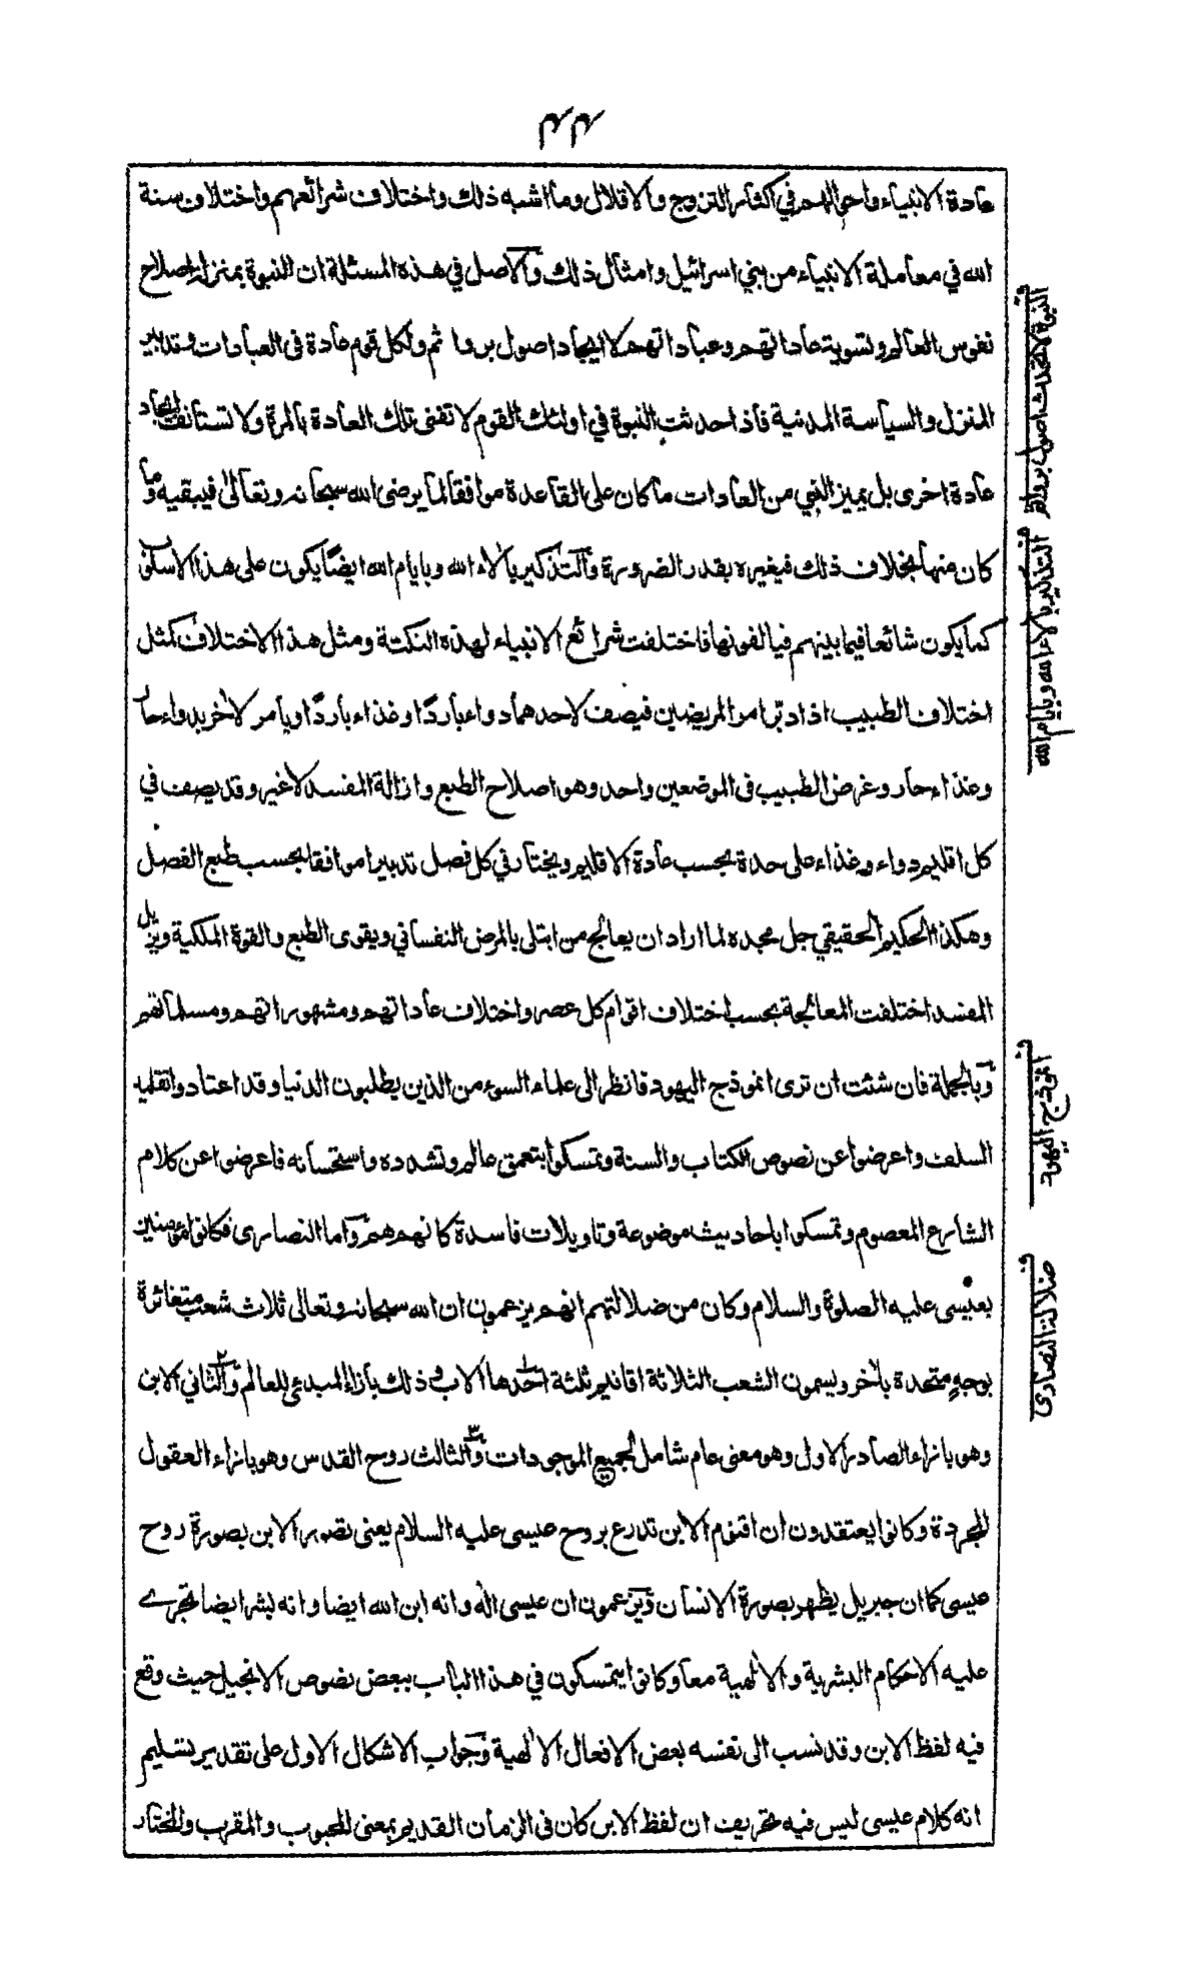 ٤٤
عادة الانبياء واحوالهم في اكثار التزوج والاقلال وما اشبه ذلك واختلاف شرائعهم واختلاف سنة
الله في معاملة الانبياء من بني اسرائيل وامثال ذلك والاصل في هذه المسئلة ان النبوة بمنزلة اصلاح
نفوس العالم وتسوية عاداتهم وعباداتهم لا ايجاد اصول بر واثم ولكل قوم عادة فى العبادات وتدابير
المنزل والسياسة المدنية فاذا حدثت النبوة في اولئك القوم لا تفنى تلك العادة بالمرة ولا تستأنف ايجاد
عادة اخرى بل يميز النبي من العادات ما كان على القاعدة موافقا لما يرضى الله سبحانه وتعالى فيبقيه وما
كان منها بخلاف ذلك فيغيره بقدر الضرورة والتذكير بالاء الله وبايام الله ايضًا يكون على هذا الاسلوب
كما يكون شائعا فيما بينهم فيالفونها فاختلفت شرائع الانبياء لهذه النكتة ومثل هذا الاختلاف كمثل
اختلاف الطبيب اذا دبّر امر المريضين فيصف لاحدهما دواء باردًا وغذاء باردًا ويأمر لآخر بدواء حار
وغذاء حار وغرض الطبيب فى الموضعين واحد وهو اصلاح الطبع وازالة المفسد لا غير وقد يصف في
كل اقليم دواء وغذاء على حدة بحسب عادة الاقليم ويختار في كل فصل تدبيرا موافقا بحسب طبع الفصل
وهكذا الحكيم الحقيقي جل مجده لما اراد ان يعالج من ابتلى بالمرض النفساني ويقوى الطبع والقوة الملكية ويزيل
المفسد اختلفت المعالجة بحسب اختلاف اقوام كل عصر واختلاف عاداتهم ومشهوراتهم ومسلماتهم
وبالجملة فان شئت ان ترى انموذج اليهود فانظر الى علماء السوء من الذين يطلبون الدنيا وقد اعتادوا تقليد
السلف واعرضوا عن نصوص الكتاب والسنة وتمسكوا بتعمق عالم وتشدده واستحسانه فاعرضوا عن كلام
الشارع المعصوم وتمسكوا باحاديث موضوعة وتاويلات فاسدة كانهم هم واما النصارى فكانوا مؤمنين
بعيسى عليه الصلوة والسلام وكان من ضلالتهم انهم يزعمون ان الله سبحانه وتعالى ثلاث شعب متغائرة
بوجهٍ متحدة بآخر ويسمون الشعب الثلاثة اقانيم ثلثة احدها الاب وذلك بازاء المبدئ للعالم والثاني الابن
وهو بازاء الصادر الاول وهو معنى عام شامل لجميع الموجودات والثالث روح القدس وهو بازاء العقول
المجردة وكانوا يعتقدون ان اقنوم الابن تدرع بروح عيسى عليه السلام يعنى تصور الابن بصورة روح
عيسى كما ان جبريل يظهر بصورة الانسان ويزعمون ان عيسى اله وانه ابن الله ايضا وانه بشر ايضا تجرى
عليه الاحكام البشرية والالهية معا وكانوا يتمسكون في هذا الباب ببعض نصوص الانجيل حيث وقع
فيه لفظ الابن وقد نسب الى نفسه بعض الافعال الالهية وجواب الاشكال الاول على تقدير تسليم
انه كلام عيسى ليس فيه تحريف ان لفظ الابن كان فى الزمان القديم بمعنى المحبوب والمقرب والمختار
النبوة لا تحدث اصول بر واثم
التذكير بالاء الله وبايام الله
انموذج اليهود
ضلالة النصارى